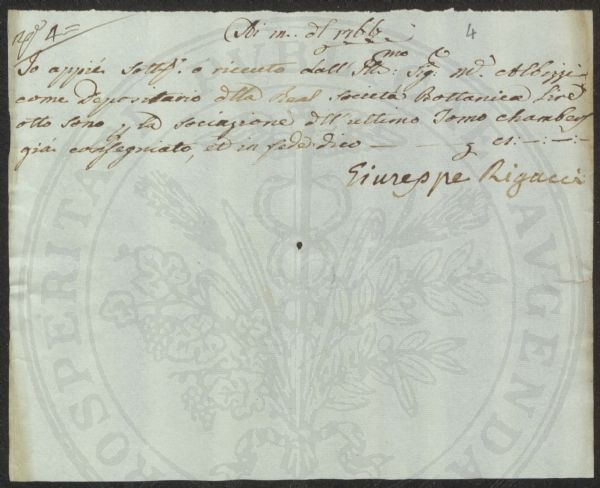 N.º 4 =
Di m.. d'l 1766. 4
Io appié sotts.º ó riceuto dall' Ill.mo Sig.e M.e Albizzi
come Depositario d'lla Real Societá Bottanica Lire
otto sono p la sociazione d'll'ultimo Tomo chambers
giá consegniato, et in fede dico — — —
Giuseppe Rigacci
PROSPERITATI AVGENDAE